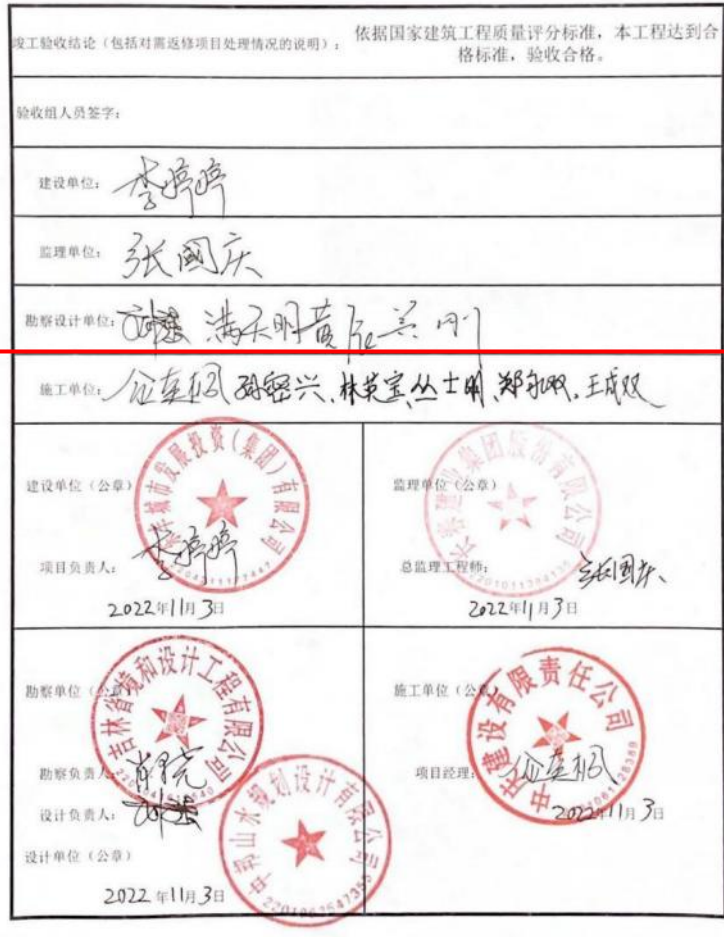 竣工验收结论（包括对需返修项目处理情况的说明）： 依据国家建筑工程质量评分标准，本工程达到合
格标准，验收合格。
验收组人员签字：
建设单位： 李婷婷
监理单位： 张國庆
勘察设计单位： 满天明 黄
施工单位： 林英宝、丛士明、郑永双、王成双
建设单位（公章）
发展投资（集团）有限公司
项目负责人： 李婷婷
2022年11月3日
监理单位（公章）
建业集团股份有限公司
总监理工程师： 张国庆
2022年11月3日
勘察单位（公章）
吉林省境和设计工程有限公司
勘察负责人：
设计负责人：
设计单位（公章）
山水规划设计有限公司
2201063547355
2022年11月3日
施工单位（公章）
中庆建设有限责任公司
项目经理：
2022年11月3日